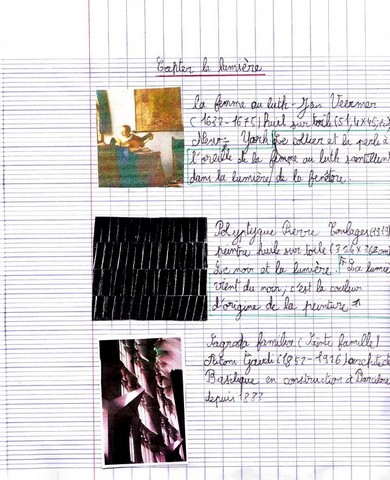 Capter la lumière
la femme au luth - Jan Veermer
(1632-1675) huile sur toile (51,4x45,7)
New-York Le collier et la perle à
l'oreille de la femme au luth scintillent
dans la lumière de la fenêtre.
Polyptyque Pierre Soulages (1919)
peintre huile sur toile (324x362cm)
Le noir et la lumière. La lumiè
vient du noir, c'est la couleur
d'origine de la peinture
Sagrada familia (Sainte famille)
Antoni Gaudi (1852-1926) architecte
Basilique en construction à Barcelone
depuis 188?